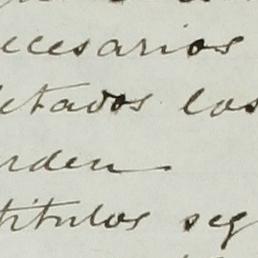 ecesarios
etados los
rden
titulos seg